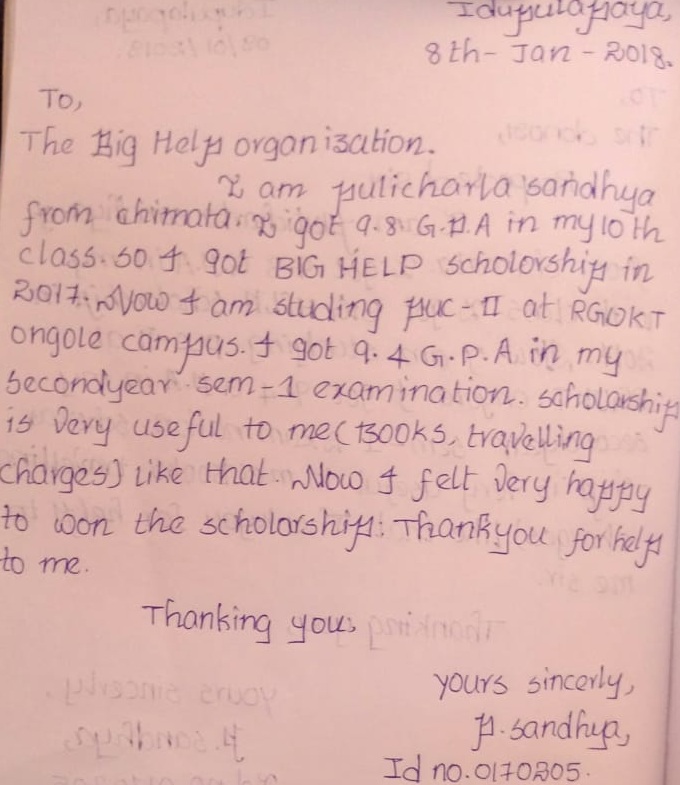 Idupulapaya,
8th- Jan - 2018.
To,
The Big Help organisation.
I am pulicharla sandhya
from chimata. I got 9.8 G.P.A in my 10th
class. so I got BIG HELP scholorship in
2017. Now I am studing puc-II at RGUKT
ongole campus. I got 9.4 G.P.A in my
secondyear sem-1 examination. scholarship
is very useful to me (BOOKS, travelling
charges) like that. Now I felt very happy
to won the scholorship: Thankyou for help
to me.
Thanking you,
yours sincerly,
p. sandhya,
Id no. 0170205.